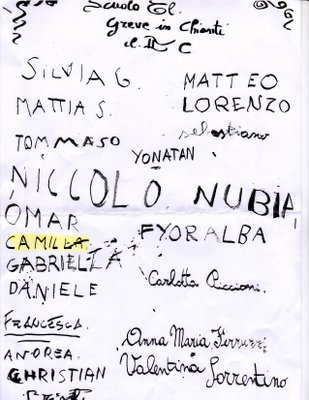 Scuola El.
Greve in Chianti
cl. II C
SILVIA G.
MATTEO
MATTIA S.
LORENZO
TOMMASO
sebastiano
YONATAN
NICCOLO. NUBIA
OMAR
FYORALBA
CAMILLA
GABRIELLA
Carlotta Piccioni.
DANIELE
FRANCESCA.
Anna Maria Ferruzzi
ANDREA.
Valentina Sorrentino
CHRISTIAN